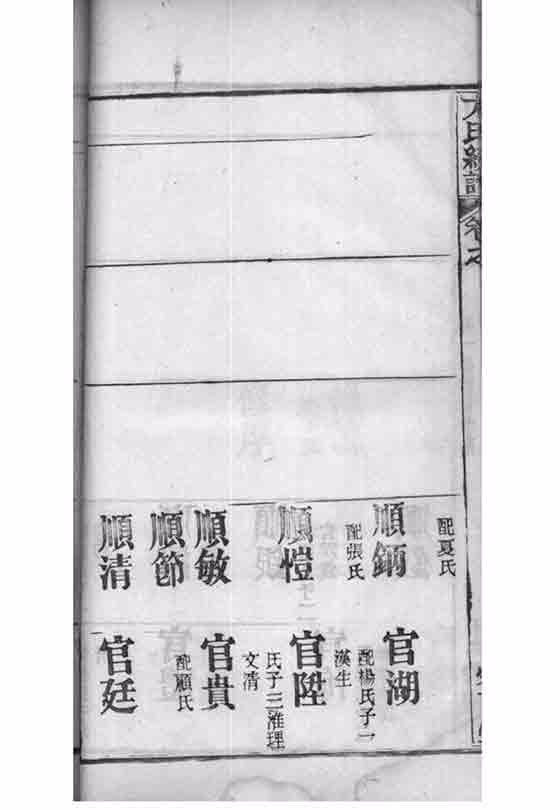 配夏氏
順鈵
配張氏
順愷
順敏
順節
順清
官湖
配楊氏子一
漢生
官陞
氏子二淮理
文清
官貴
配顧氏
官廷